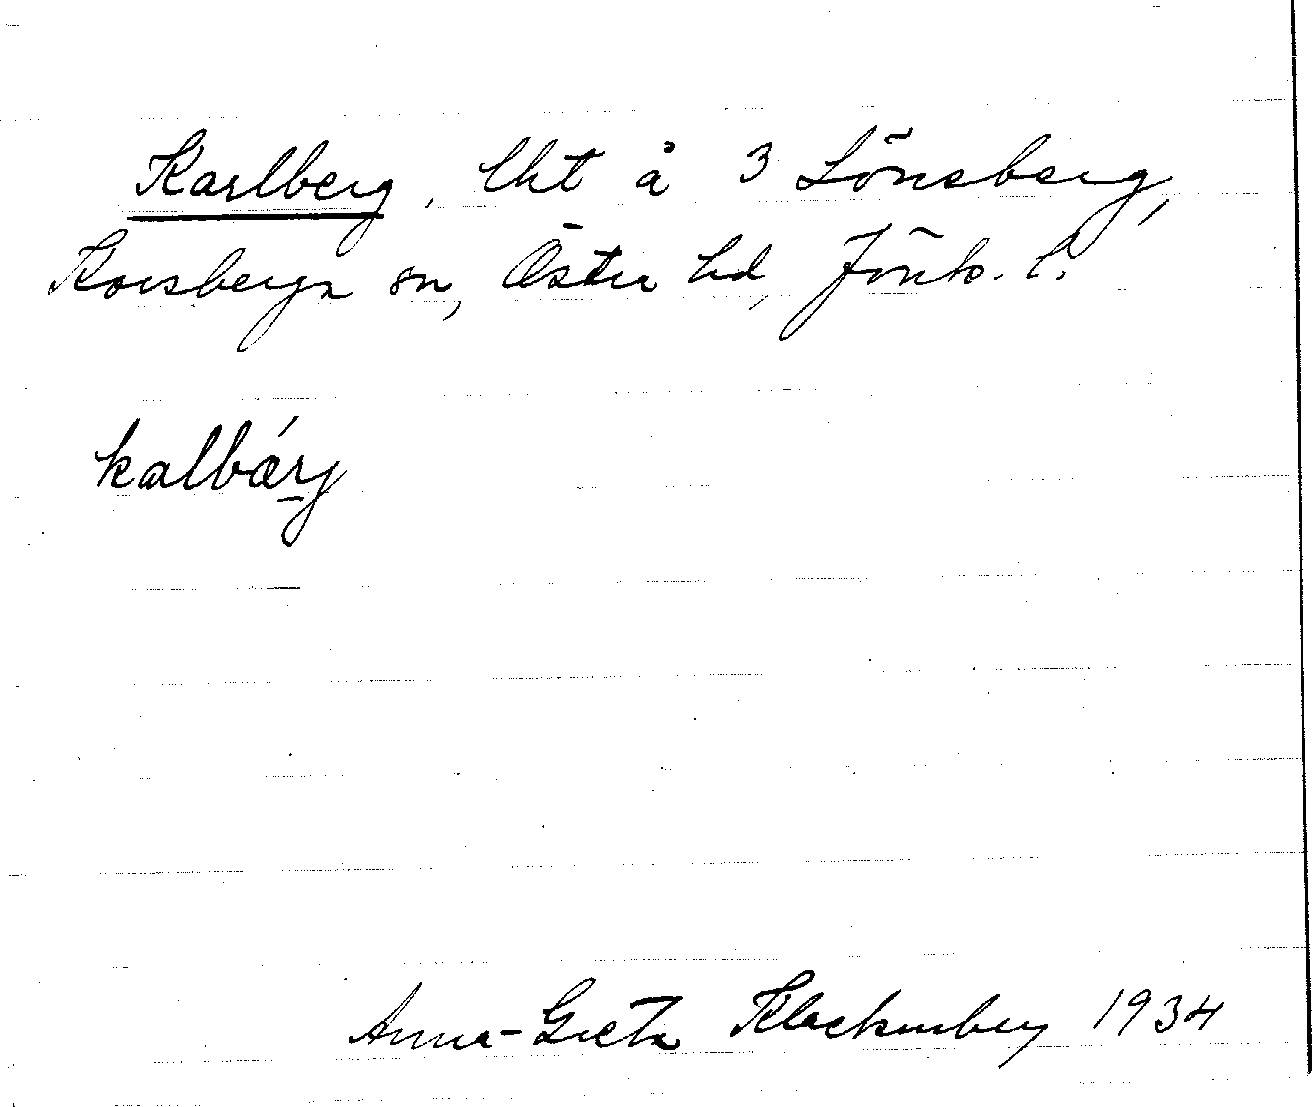 Karlberg, lht å 3 Lönsberg,
Korsberga sn, Östra hd, Jönk. l.
kalbárj
Anna-Greta Klackenberg 1934